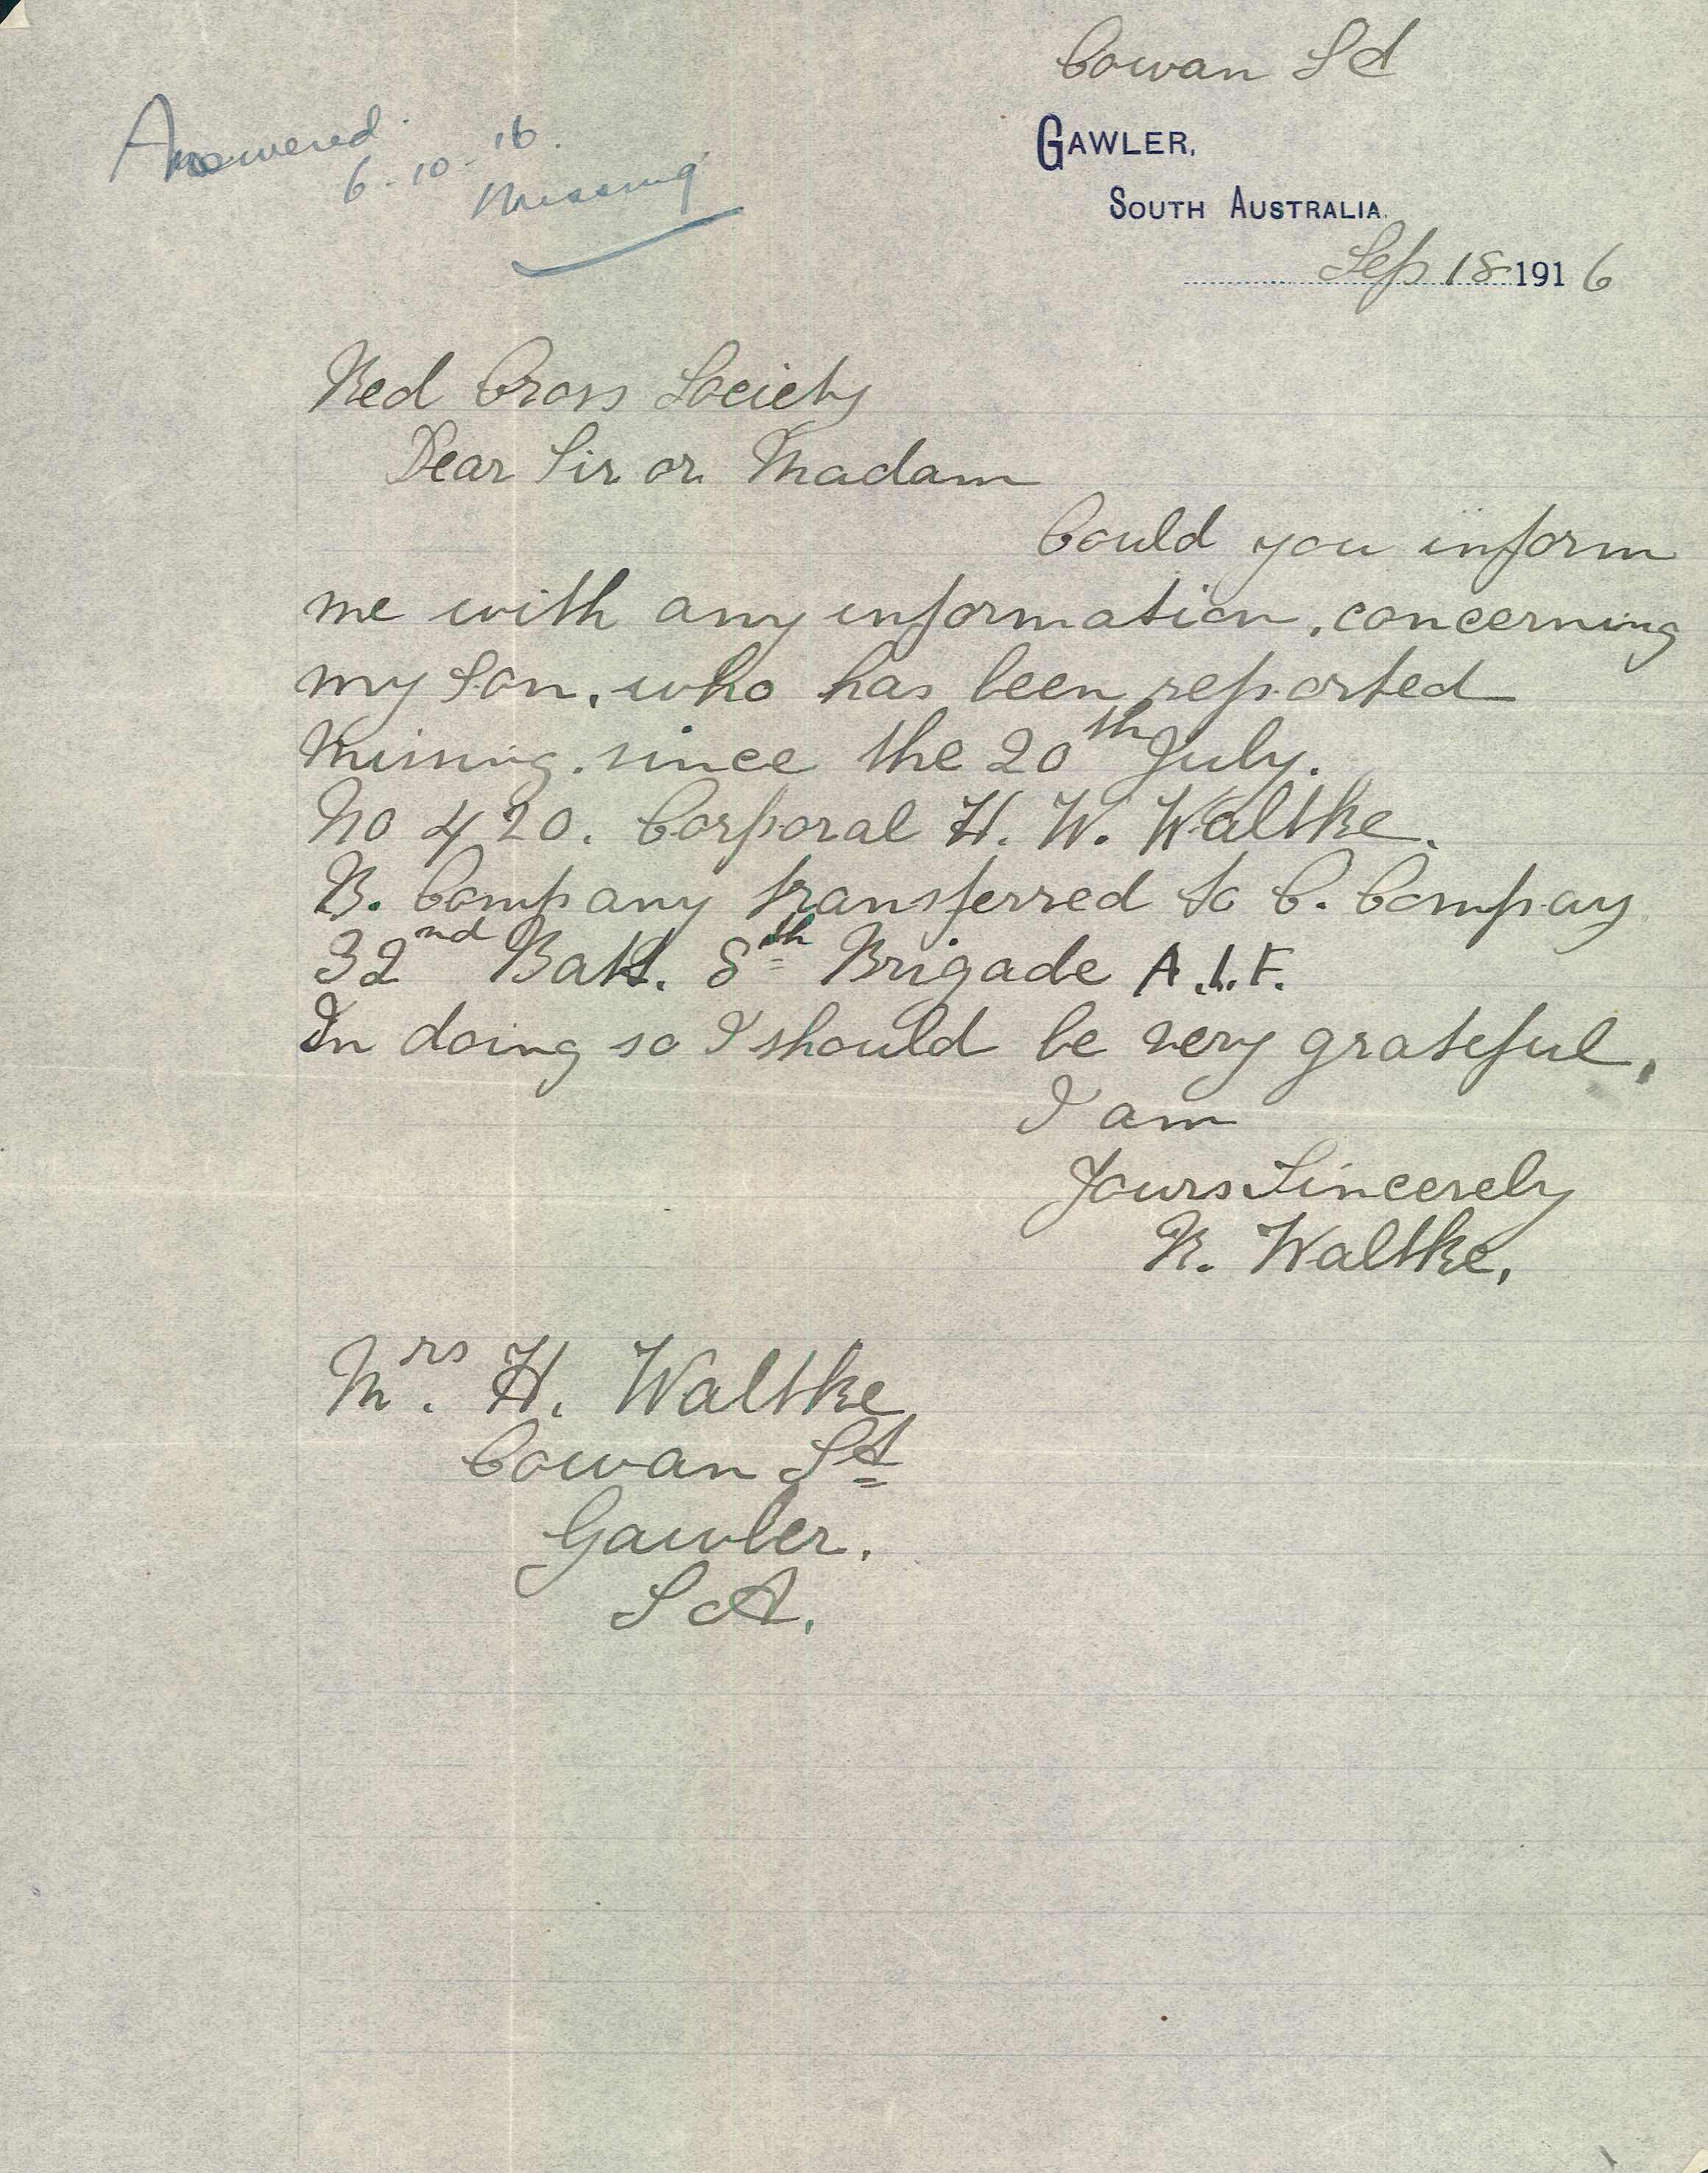 Cowan St
Answered
6-10-16.
Missing
GAWLER,
SOUTH AUSTRALIA.
Sep 18 1916
Red Cross Society
Dear Sir or Madam
Could you inform
me with any information, concerning
my Son, who has been reported
Missing, since the 20th July.
No 420. Corporal H. W. Waltke.
B. Company transferred to C. Compay
32nd Batt. 8th Brigade A.I.F.
In doing so I should be very grateful,
I am
Yours Sincerely
R. Waltke,
Mrs. H. Waltke
Cowan St
Gawler.
S A.